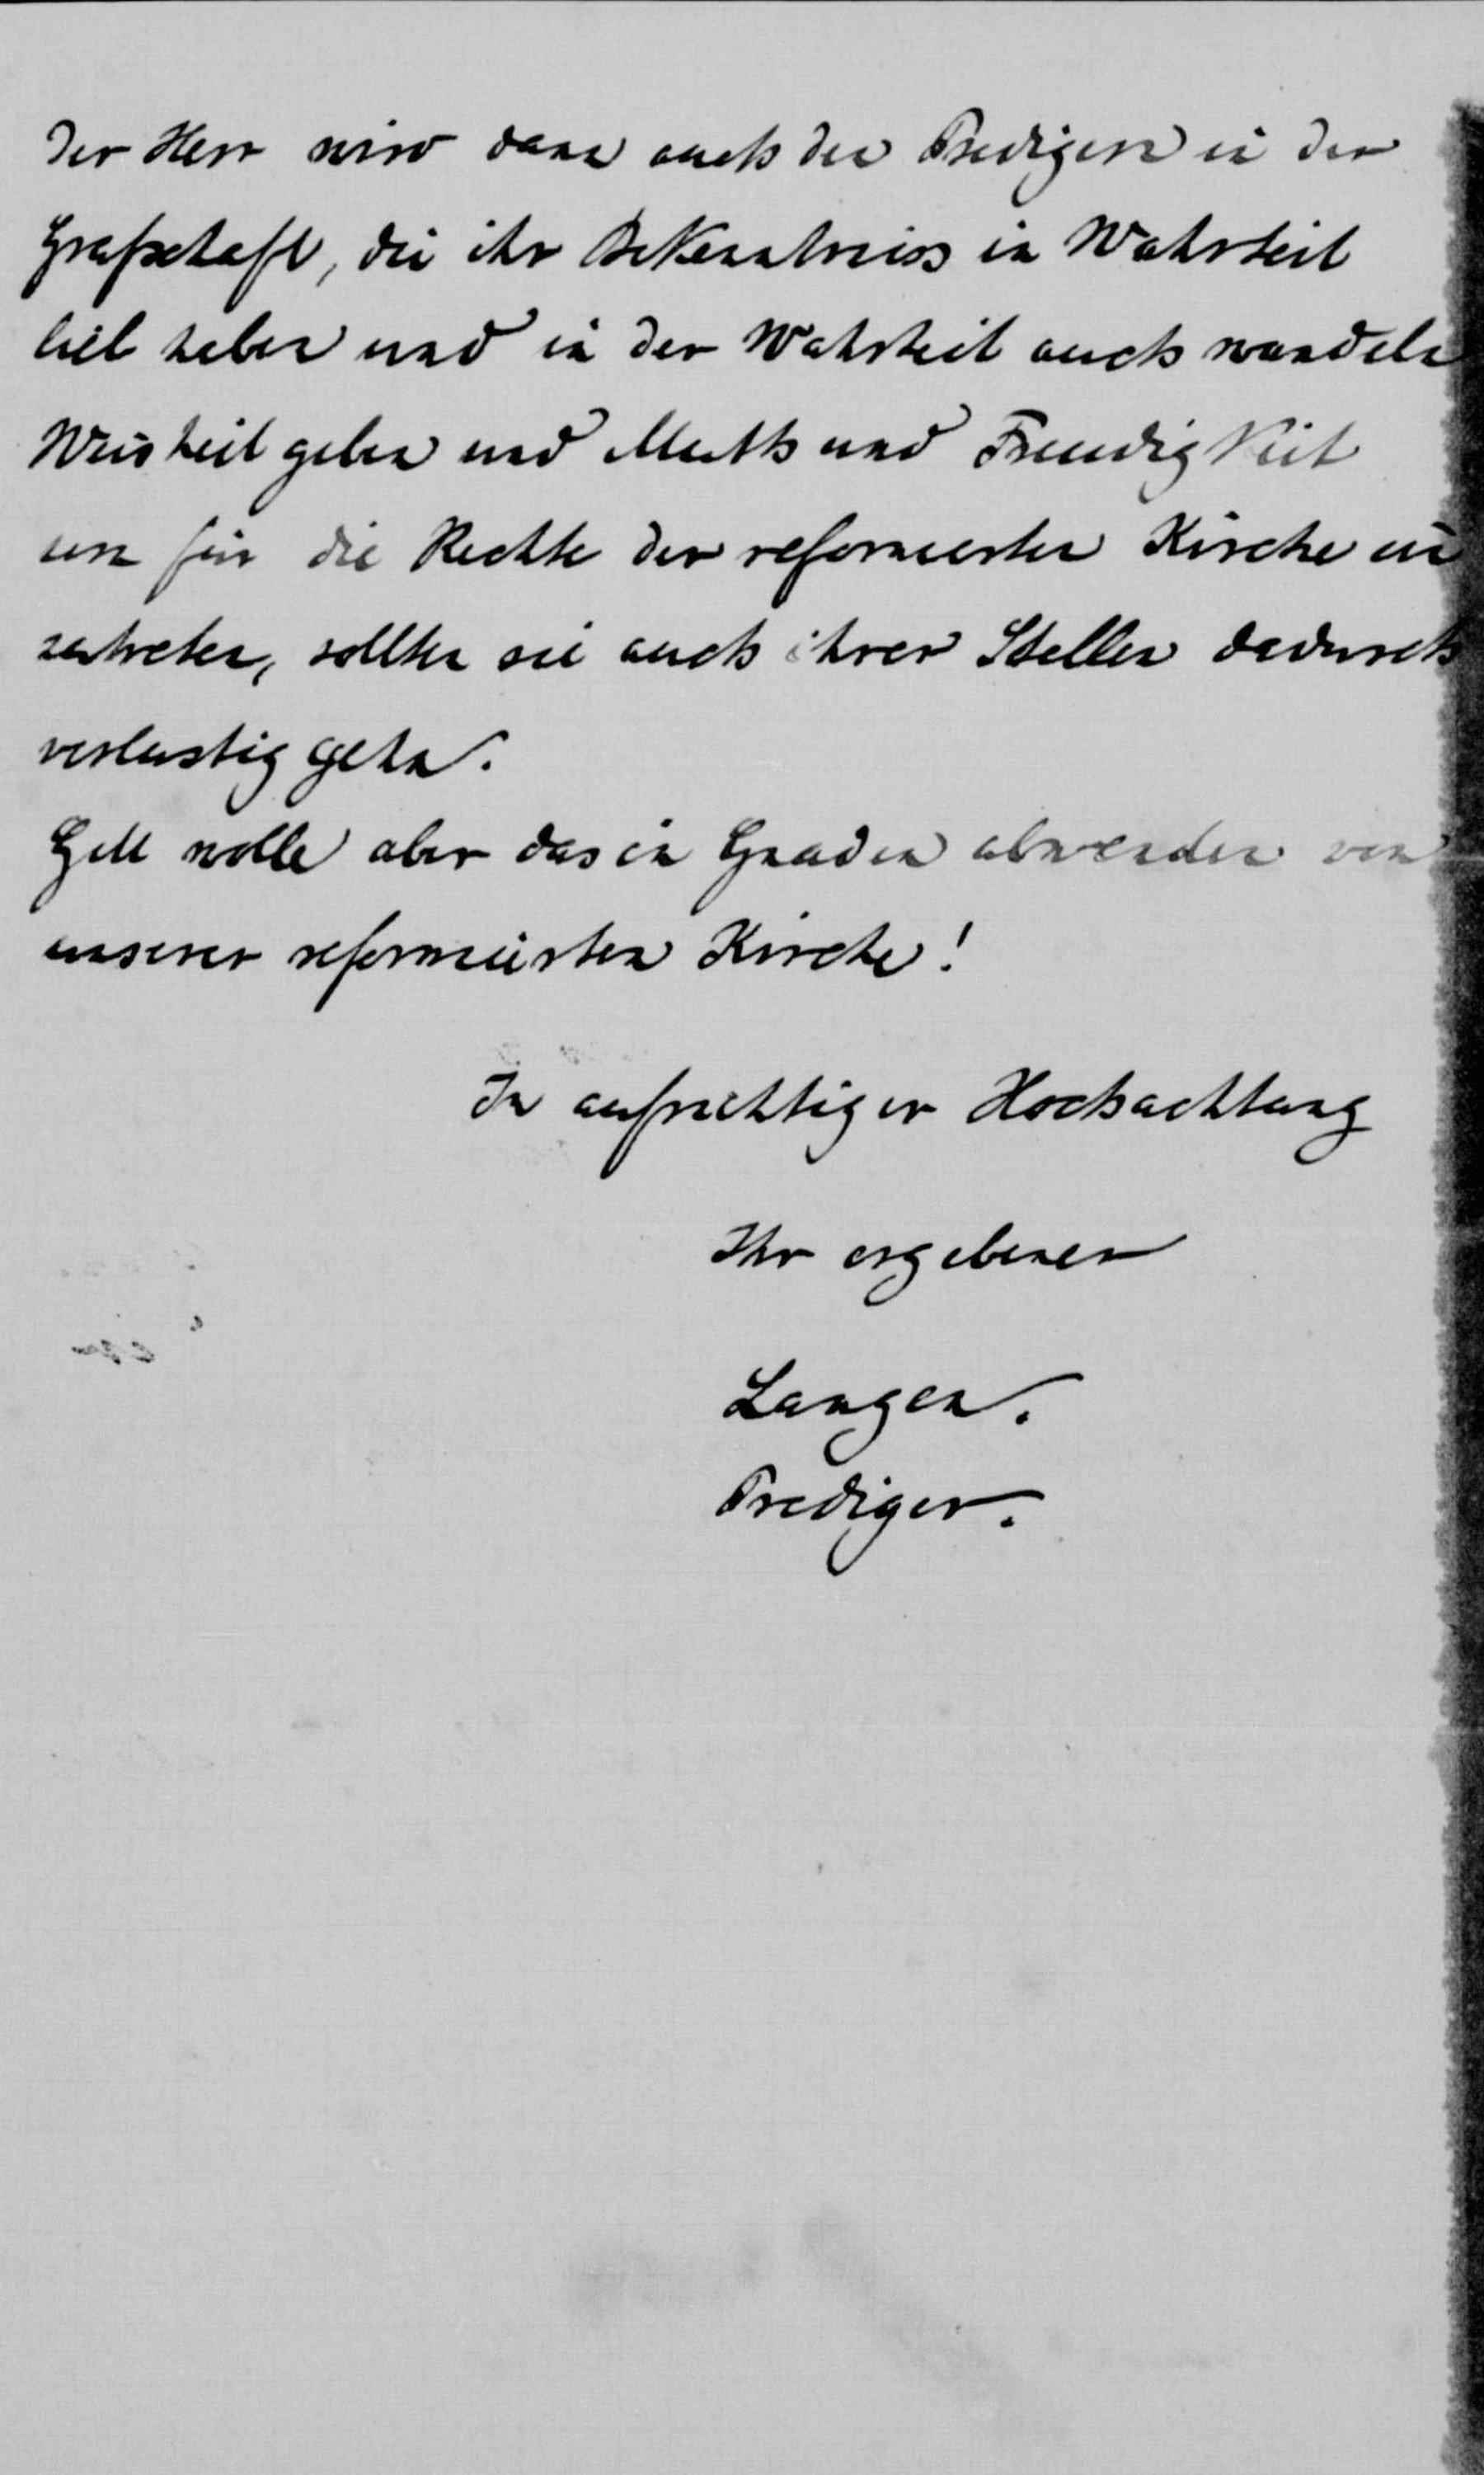 Der Herr wird dann auch den Predigern in der
Grafschaft, die ihr Bekenntniss in Wahrheit
lieb haben und in der Wahrheit auch wandeln
Weisheit geben und Muth und Freudigkeit
um für die Rechte der reformierten Kirche ein
zutreten, sollten sie auch ihrer Stellen dadurch
verlustig gehn.
Gott wolle aber das in Gnaden abwenden von
unserer reformierten Kirche!
In aufrichtiger Hochachtung
Ihr ergebener
Langen.
Prediger.